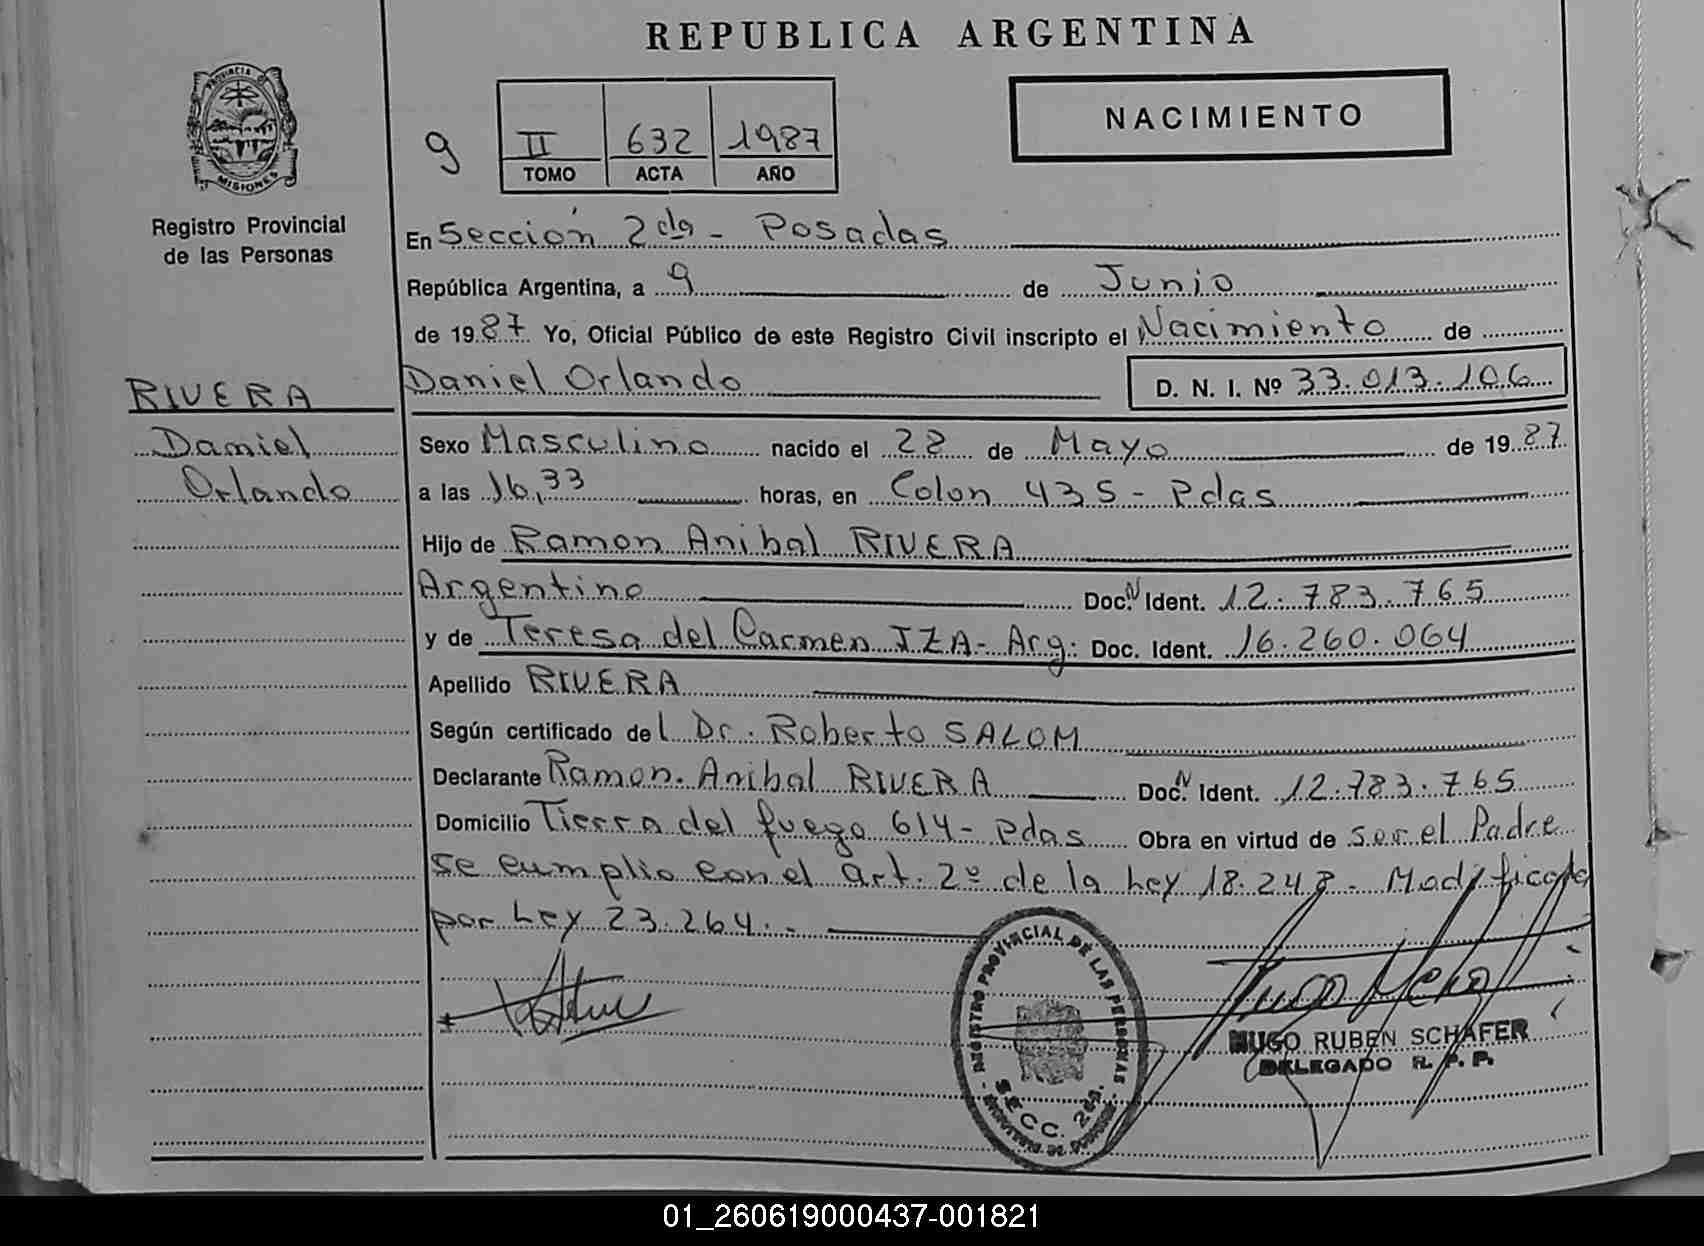 REPUBLICA ARGENTINA
PROVINCIA DE
MISIONES
Registro Provincial
de las Personas
9
II 632 1987
TOMO ACTA AÑO
NACIMIENTO
En Sección 2da - Posadas
República Argentina, a 9 de Junio
de 1987 Yo, Oficial Público de este Registro Civil inscripto el Nacimiento de
Daniel Orlando D. N. I. Nº 33.013.106
RIVERA
Daniel
Orlando
Sexo Masculino nacido el 28 de Mayo de 1987
a las 16,33 horas, en Colon 435 - Pdas
Hijo de Ramon Anibal RIVERA
Argentino Doc. N Ident. 12.783.765
y de Teresa del Carmen IZA - Arg: Doc. Ident. 16.260.064
Apellido RIVERA
Según certificado del Dr. Roberto SALOM
Declarante Ramon Anibal RIVERA Doc. N Ident. 12.783.765
Domicilio Tierra del fuego 614 - Pdas Obra en virtud de ser el Padre
se cumplio con el art. 2º de la Ley 18.248 - Modificada
por Ley 23.264. -
REGISTRO PROVINCIAL DE LAS PERSONAS
SECC. 2da.
HUGO RUBEN SCHAFER
DELEGADO R. P. P.
01_260619000437-001821